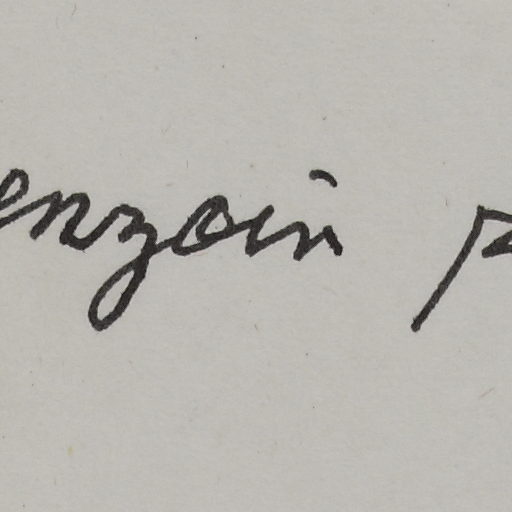 enzoin p